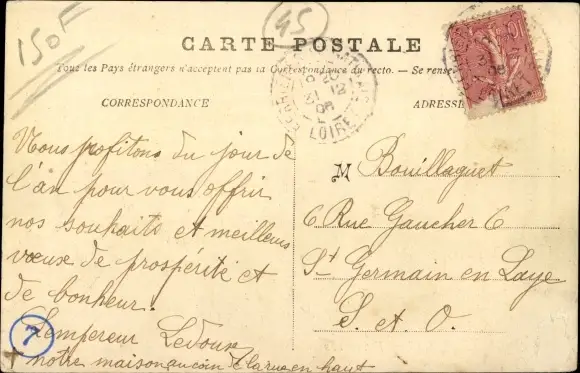 150F
45
CARTE POSTALE
Tous les Pays étrangers n'acceptent pas la Correspondance du recto. — Se rense
CORRESPONDANCE
ADRESSE
31 12
06
LOIRE
10
Nous profitons du jour de
l'an pour vous offrir
nos souhaits et meilleurs
vœux de prospérité et
de bonheur.
Lempereur Ledoux
+ notre maison au coin de la rue en haut
7
M Bouillaguet
6 Rue Gaucher 6
St Germain en Laye
S. et O.